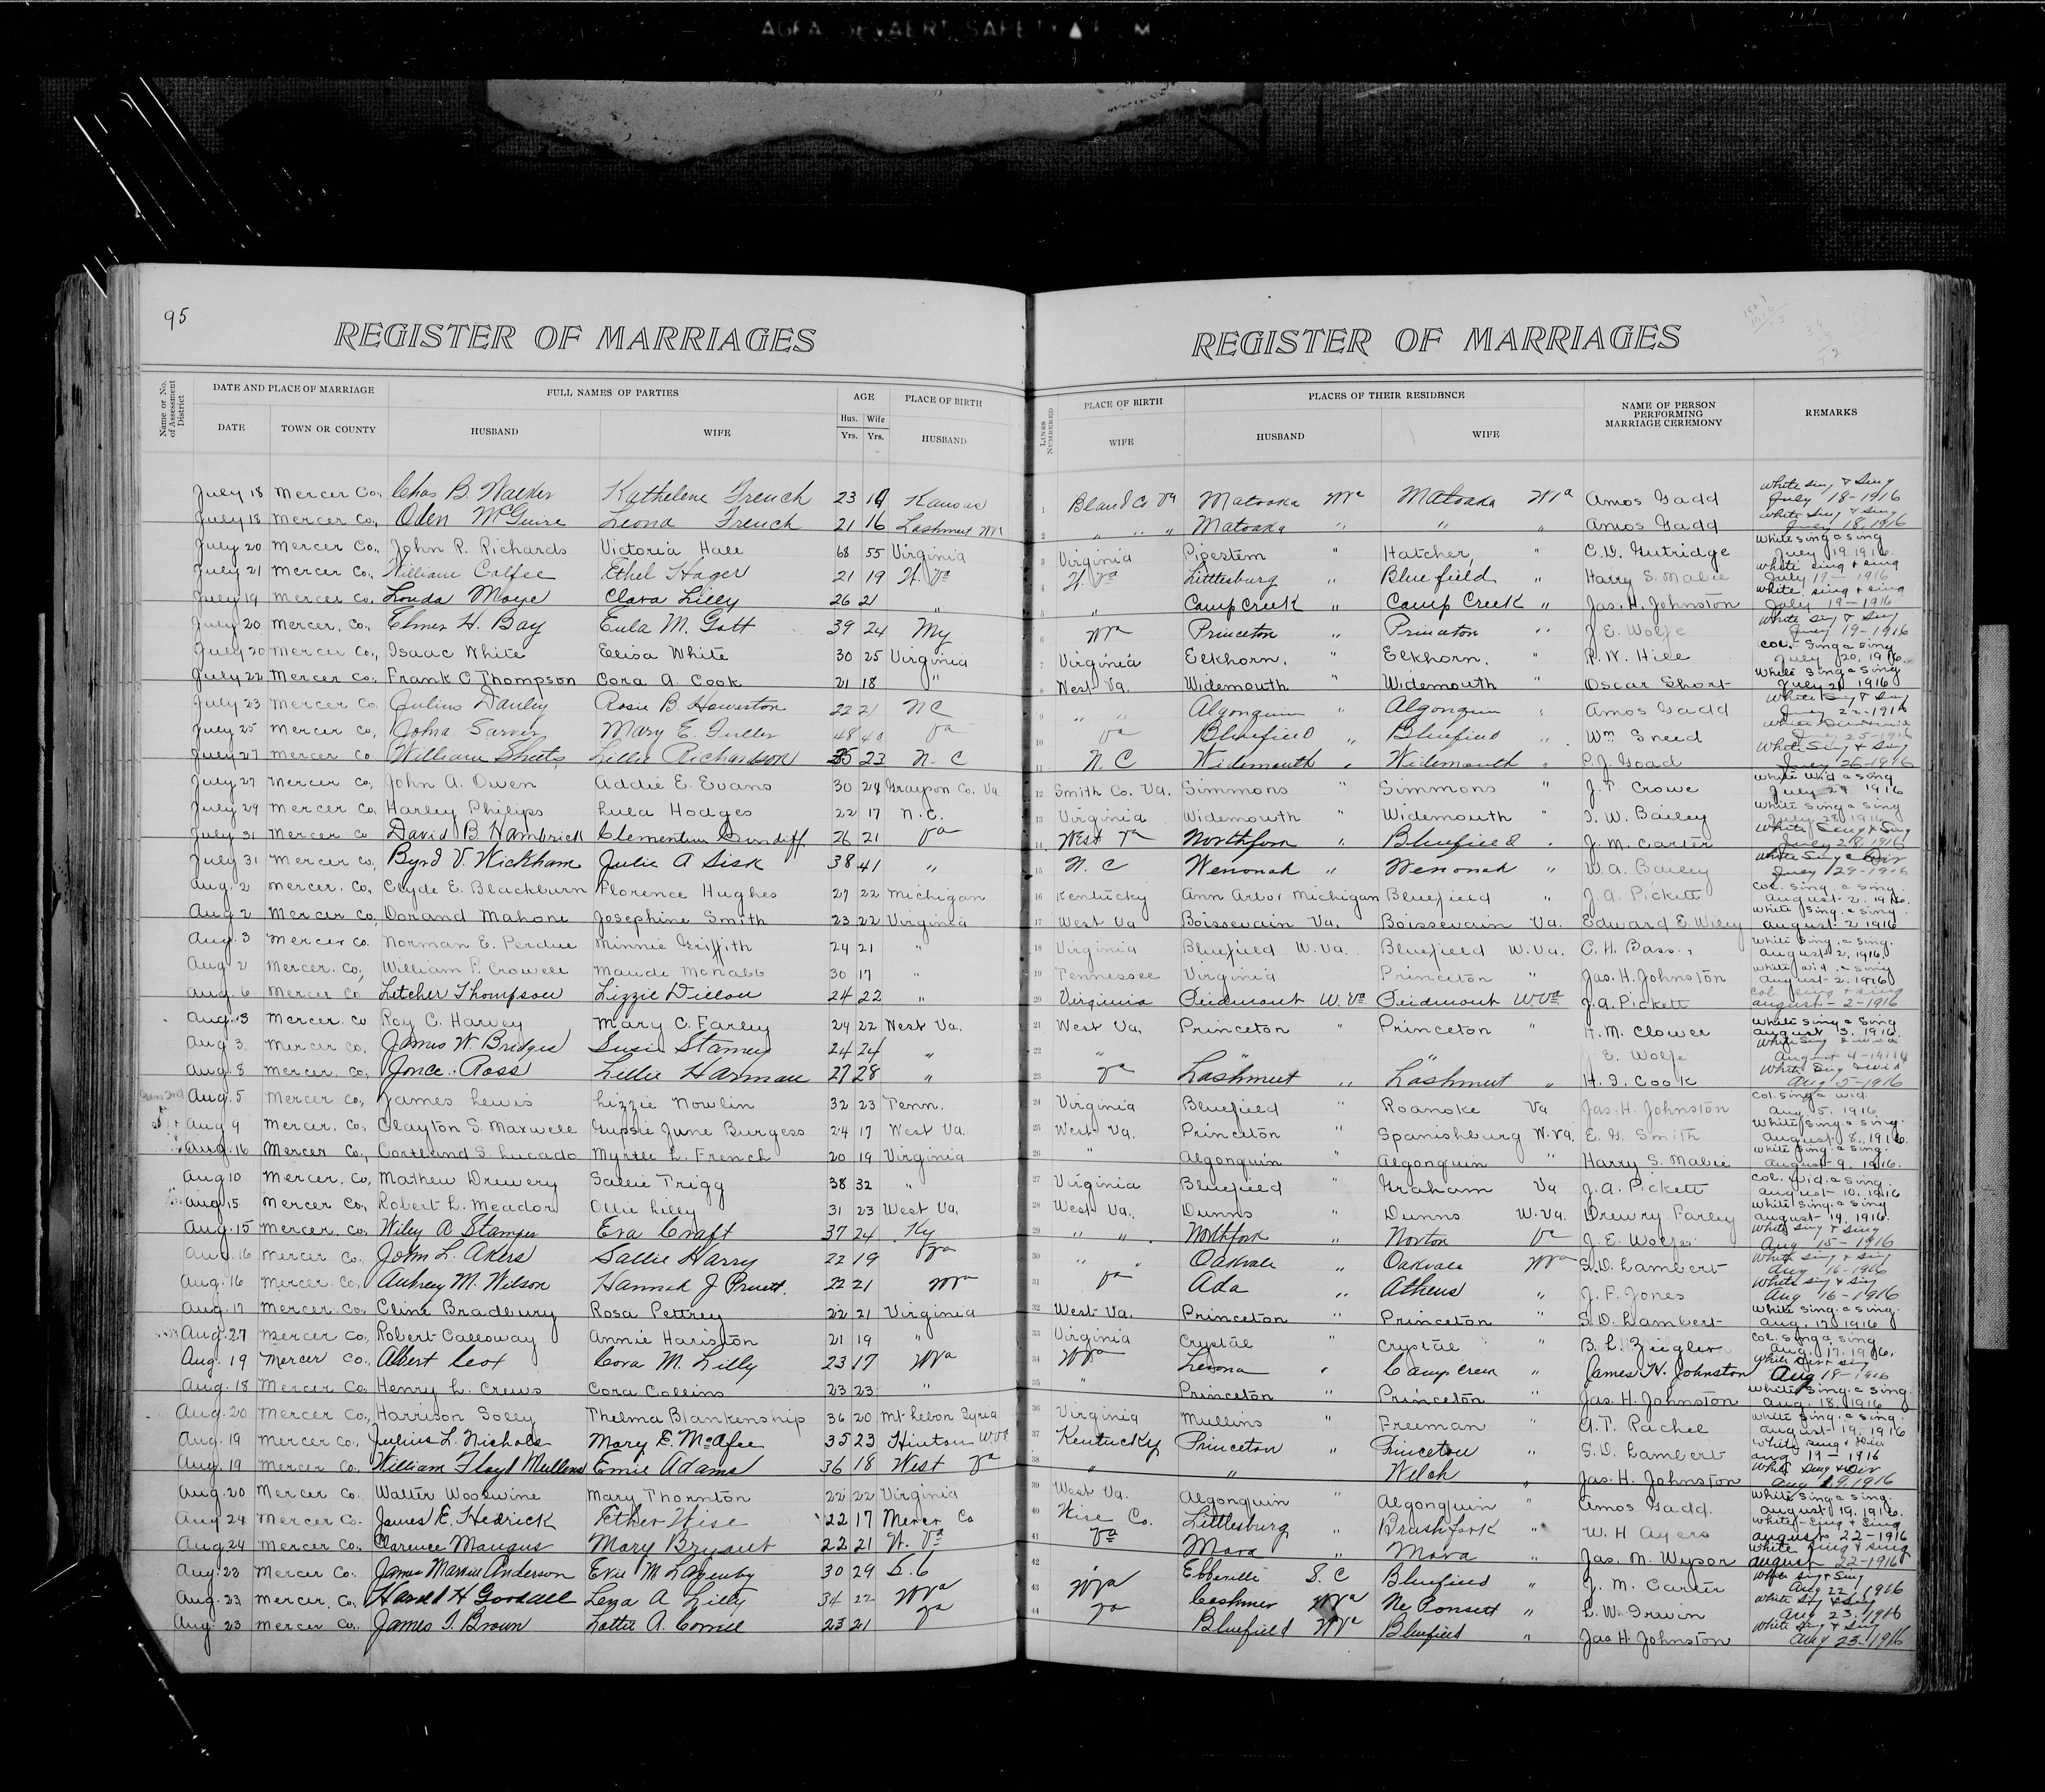 95
REGISTER OF MARRIAGES REGISTER OF MARRIAGES
Name or No. of Assessment District
DATE AND PLACE OF MARRIAGE FULL NAMES OF PARTIES AGE PLACE OF BIRTH LINES NUMBERED PLACE OF BIRTH PLACES OF THEIR RESIDENCE NAME OF PERSON PERFORMING MARRIAGE CEREMONY REMARKS
DATE TOWN OR COUNTY HUSBAND WIFE Hus. Yrs. Wife Yrs. HUSBAND WIFE HUSBAND WIFE
July 18 Mercer Co., Chas B. Walker Kathelene French 23 19 Kansas 1 Bland Co Va Matoaka Wva Matoaka Wva Amos Gadd White sing & sing July 18-1916
July 18 Mercer Co., Oden McGuire Leona French 21 16 Lashmeet Wva 2 " " " Matoaka " " " Amos Gadd White Sing & Sing July 18, 1916
July 20 Mercer Co., John P. Richards Victoria Hall 68 55 Virginia 3 Virginia Pipestem " Hatcher, " C.D. Gutridge White Sing & Sing July 19 1916
July 21 Mercer Co., William Calfee Ethel Hager 21 19 W. Va 4 W. Va Littlesburg " Bluefield " Harry S. Malie White sing & sing July 19-1916
July 19 Mercer Co., Londa Moye Clara Lilly 26 21 " 5 " Camp Creek " Camp Creek " Jas. H. Johnston White, sing & sing July 19-1916
July 20 Mercer. Co., Elmer H. Bay Eula M. Gott 39 24 My 6 Wva Princeton " Princeton " J E. Wolfe White Sing & Sing July 19-1916
July 20 Mercer Co., Isaac White Elisa White 30 25 Virginia 7 Virginia Elkhorn. " Elkhorn. " R. W. Hill Col. Sing & sing July 20, 1916.
July 22 Mercer Co., Frank C Thompson Cora A. Cook 21 18 " 8 West Va. Widemouth " Widemouth " Oscar Short White Sing & Sing July 21 1916
July 23 Mercer Co Julius Danley Rosie B. Howerton 22 21 N C 9 " " Algonquin " Algonquin " Amos Gadd White Sing & Sing July 22-1916
July 25 Mercer Co, John Sarver Mary E. Fuller 48 40 Va 10 Va Bluefield " Bluefield " Wm Sneed July 25-1916
July 27 Mercer Co William Sheets Lillie Richardson 35 23 N. C 11 N. C Widemouth " Widemouth " P. J. Goad White Sing & Sing July 26-1916
July 27 Mercer Co, John A. Owen Addie E. Evans 30 24 Grayson Co. Va. 12 Smith Co. Va. Simmons " Simmons " J. T Crowe White Wid & Sing July 27 1916
July 29 Mercer Co, Harley Philips Lula Hodges 22 17 N. C. 13 Virginia Widemouth " Widemouth " I. W. Bailey White Sing & Sing July 28 1916
July 31 Mercer Co David B. Hambrick Clementine Cundiff 26 21 Va 14 West Va Northfork " Bluefield " J. M. Carter White Sing & Sing July 28, 1916
July 31 Mercer Co, Byrd V. Wickham Julie A Sisk 38 41 " 15 N. C Wenonah " Wenonah " W. A. Bailey White Sing & Div July 29-1916
Aug. 2 Mercer. Co, Clyde E. Blackburn Florence Hughes 27 22 Michigan 16 Kentucky Ann Arbor Michigan Bluefield " J. A. Pickett Col. Sing. & Sing. August-2. 1916.
Aug. 2 Mercer Co, Dorand Mahone Josephine Smith 23 22 Virginia 17 West Va Boissevain Va. Boissevain Va. Edward E. Wiley White Sing. & Sing. August. 2 1916
Aug. 3 Mercer Co. Norman E. Perdue Minnie Griffith 24 21 " 18 Virginia Bluefield W. Va. Bluefield W. Va. C. H. Bass White Sing. & Sing. August 2, 1916.
Aug 2 Mercer. Co., William P. Crowell Maude McNabb 30 17 " 19 Tennessee Virginia Princeton " Jas. H. Johnston White wid. & Sing August-2, 1916
Aug. 6 Mercer Co Letcher Thompson Lizzie Dillon 24 22 " 20 Virginia Piedmont W. Va. Piedmont W. Va J. A. Pickett Col. Sing & Sing August-2-1916
Aug. 3 Mercer. Co Roy C. Harvey Mary C. Farley 24 22 West Va. 21 West Va. Princeton " Princeton " H. M. Clower White Sing & Sing August 3. 1916
Aug 3. Mercer Co. James W. Bridges Susie Stamey 24 24 " 22 " " " E. Wolfe August 4-1914
Aug. 8 Mercer. Co, Jonce Ross Lillie Harman 27 28 " 23 Va Lashmeet " Lashmeet " H. I. Cook White Sing & wid Aug 5-1916
Aug. 5 Mercer Co, James Lewis Lizzie Nowlin 32 23 Tenn. 24 Virginia Bluefield " Roanoke Va Jas. H. Johnston Col. Sing & Wid. Aug 5. 1916
Aug 9 Mercer. Co, Clayton S. Maxwell Gypsie June Burgess 24 17 West Va. 25 West Va. Princeton " Spanishburg W. Va. E. G. Smith White Sing. & Sing. August 8. 1916.
Aug. 16 Mercer Co., Cortland S. Lucado Myrtle L. French 20 19 Virginia 26 " Algonquin " Algonquin " Harry S. Malie White Sing. & Sing. August-9. 1916.
Aug 10 Mercer. Co, Mathew Drewery Sallie Trigg 38 32 " 27 Virginia Bluefield " Graham Va J. A. Pickett Col. Wid. & Sing. August-10. 1916
Aug. 15 Mercer Co., Robert L. Meador Ollie Lilly 31 23 West Va. 28 West Va. Dunns " Dunns W. Va. Drewry Farley White Sing. & Sing August-14. 1916.
Aug. 15 Mercer. Co, Wiley A. Stamper Eva Craft 37 24 Ky 29 " " Northfork " Norton Va J. E. Wolfe White Sing & Sing Aug 15-1916
Aug. 16 Mercer Co. John L. Akers Sallie Harry 22 19 Va 30 " " Oakvale " Oakvale Wva S. D. Lambert White Sing & Sing Aug 16-1916
Aug. 16 Mercer. Co, Aubrey M. Wilson Hannah J Pruett. 22 21 Wva 31 Va Ada " Athens " J. F. Jones White Sing & Sing Aug 16-1916
Aug. 17 Mercer. Co, Cline Bradbury Rosa Pettrey 22 21 Virginia 32 West Va. Princeton " Princeton " S. D. Lambert White Sing. & Sing. Aug. 17 1916
Aug. 27 Mercer Co, Robert Calloway Annie Hariston 21 19 " 33 Virginia Crystal " Crystal " B. L. Ziegler Col. Sing & Sing Aug. 17. 1916.
Aug. 19 Mercer Co. Albert Cox Cora M. Lilly 23 17 Wva 34 Wva Lerona " Camp Creek " James H. Johnston White Div & Sing Aug 18-1916
Aug. 18 Mercer Co, Henry L. Crews Cora Collins 23 23 " 35 " Princeton " Princeton " Jas. H. Johnston White Sing. & Sing. Aug. 18, 1916
Aug. 20 Mercer Co., Harrison Solly Thelma Blankenship 36 20 Mt. Lebon Syria 36 Virginia Mullins " Freeman " A. T. Rachel White Sing. & Sing. August-19-1916
Aug. 19 Mercer Co. Julius L. Nichols Mary E. McAfee 35 23 Hinton W Va 37 Kentucky Princeton " Princeton " S. D. Lambert White Sing & Div Aug 19-1916
Aug. 19 Mercer Co. William Floyd Mullens Emie Adams 36 18 West Va 38 " " Welch " Jas. H. Johnston White Sing & Div Aug 19 1916
Aug. 20 Mercer Co. Walter Woolwine Mary Thornton 22 22 Virginia 39 West Va. Algonquin " Algonquin " Amos Gadd. White Sing & Sing. August 19. 1916.
Aug 24 Mercer Co. James E. Hedrick Ether Wise 22 17 Mercer Co 40 Wise Co. Littlesburg " Brushfork " W. H Ayers White Sing & Sing August 22-1916
Aug. 24 Mercer Co. Clarence Mangus Mary Bryant 22 21 W. Va 41 Va Mora " Mora " Jas. M. Wysor White Sing & Sing August 22-1916
Aug. 23 Mercer Co. James Marvin Anderson Evie M Lazenby 30 29 S. C 42 " Ebbeville S. C Bluefield " J. M. Carter White Sing & Sing Aug 22 1916
Aug. 23 Mercer. Co. Harold H Goodall Lena A Lilly 34 22 Wva 43 Wva Coshmer Wva Ne Ponsett " L. W. Irwin White Sing & Sing Aug 23. 1916
Aug. 23 Mercer Co. James I. Brown Lottie A. Correll 23 21 Va 44 Va Bluefield Wva Bluefield " Jas H. Johnston White Sing & Sing Aug 23-1916